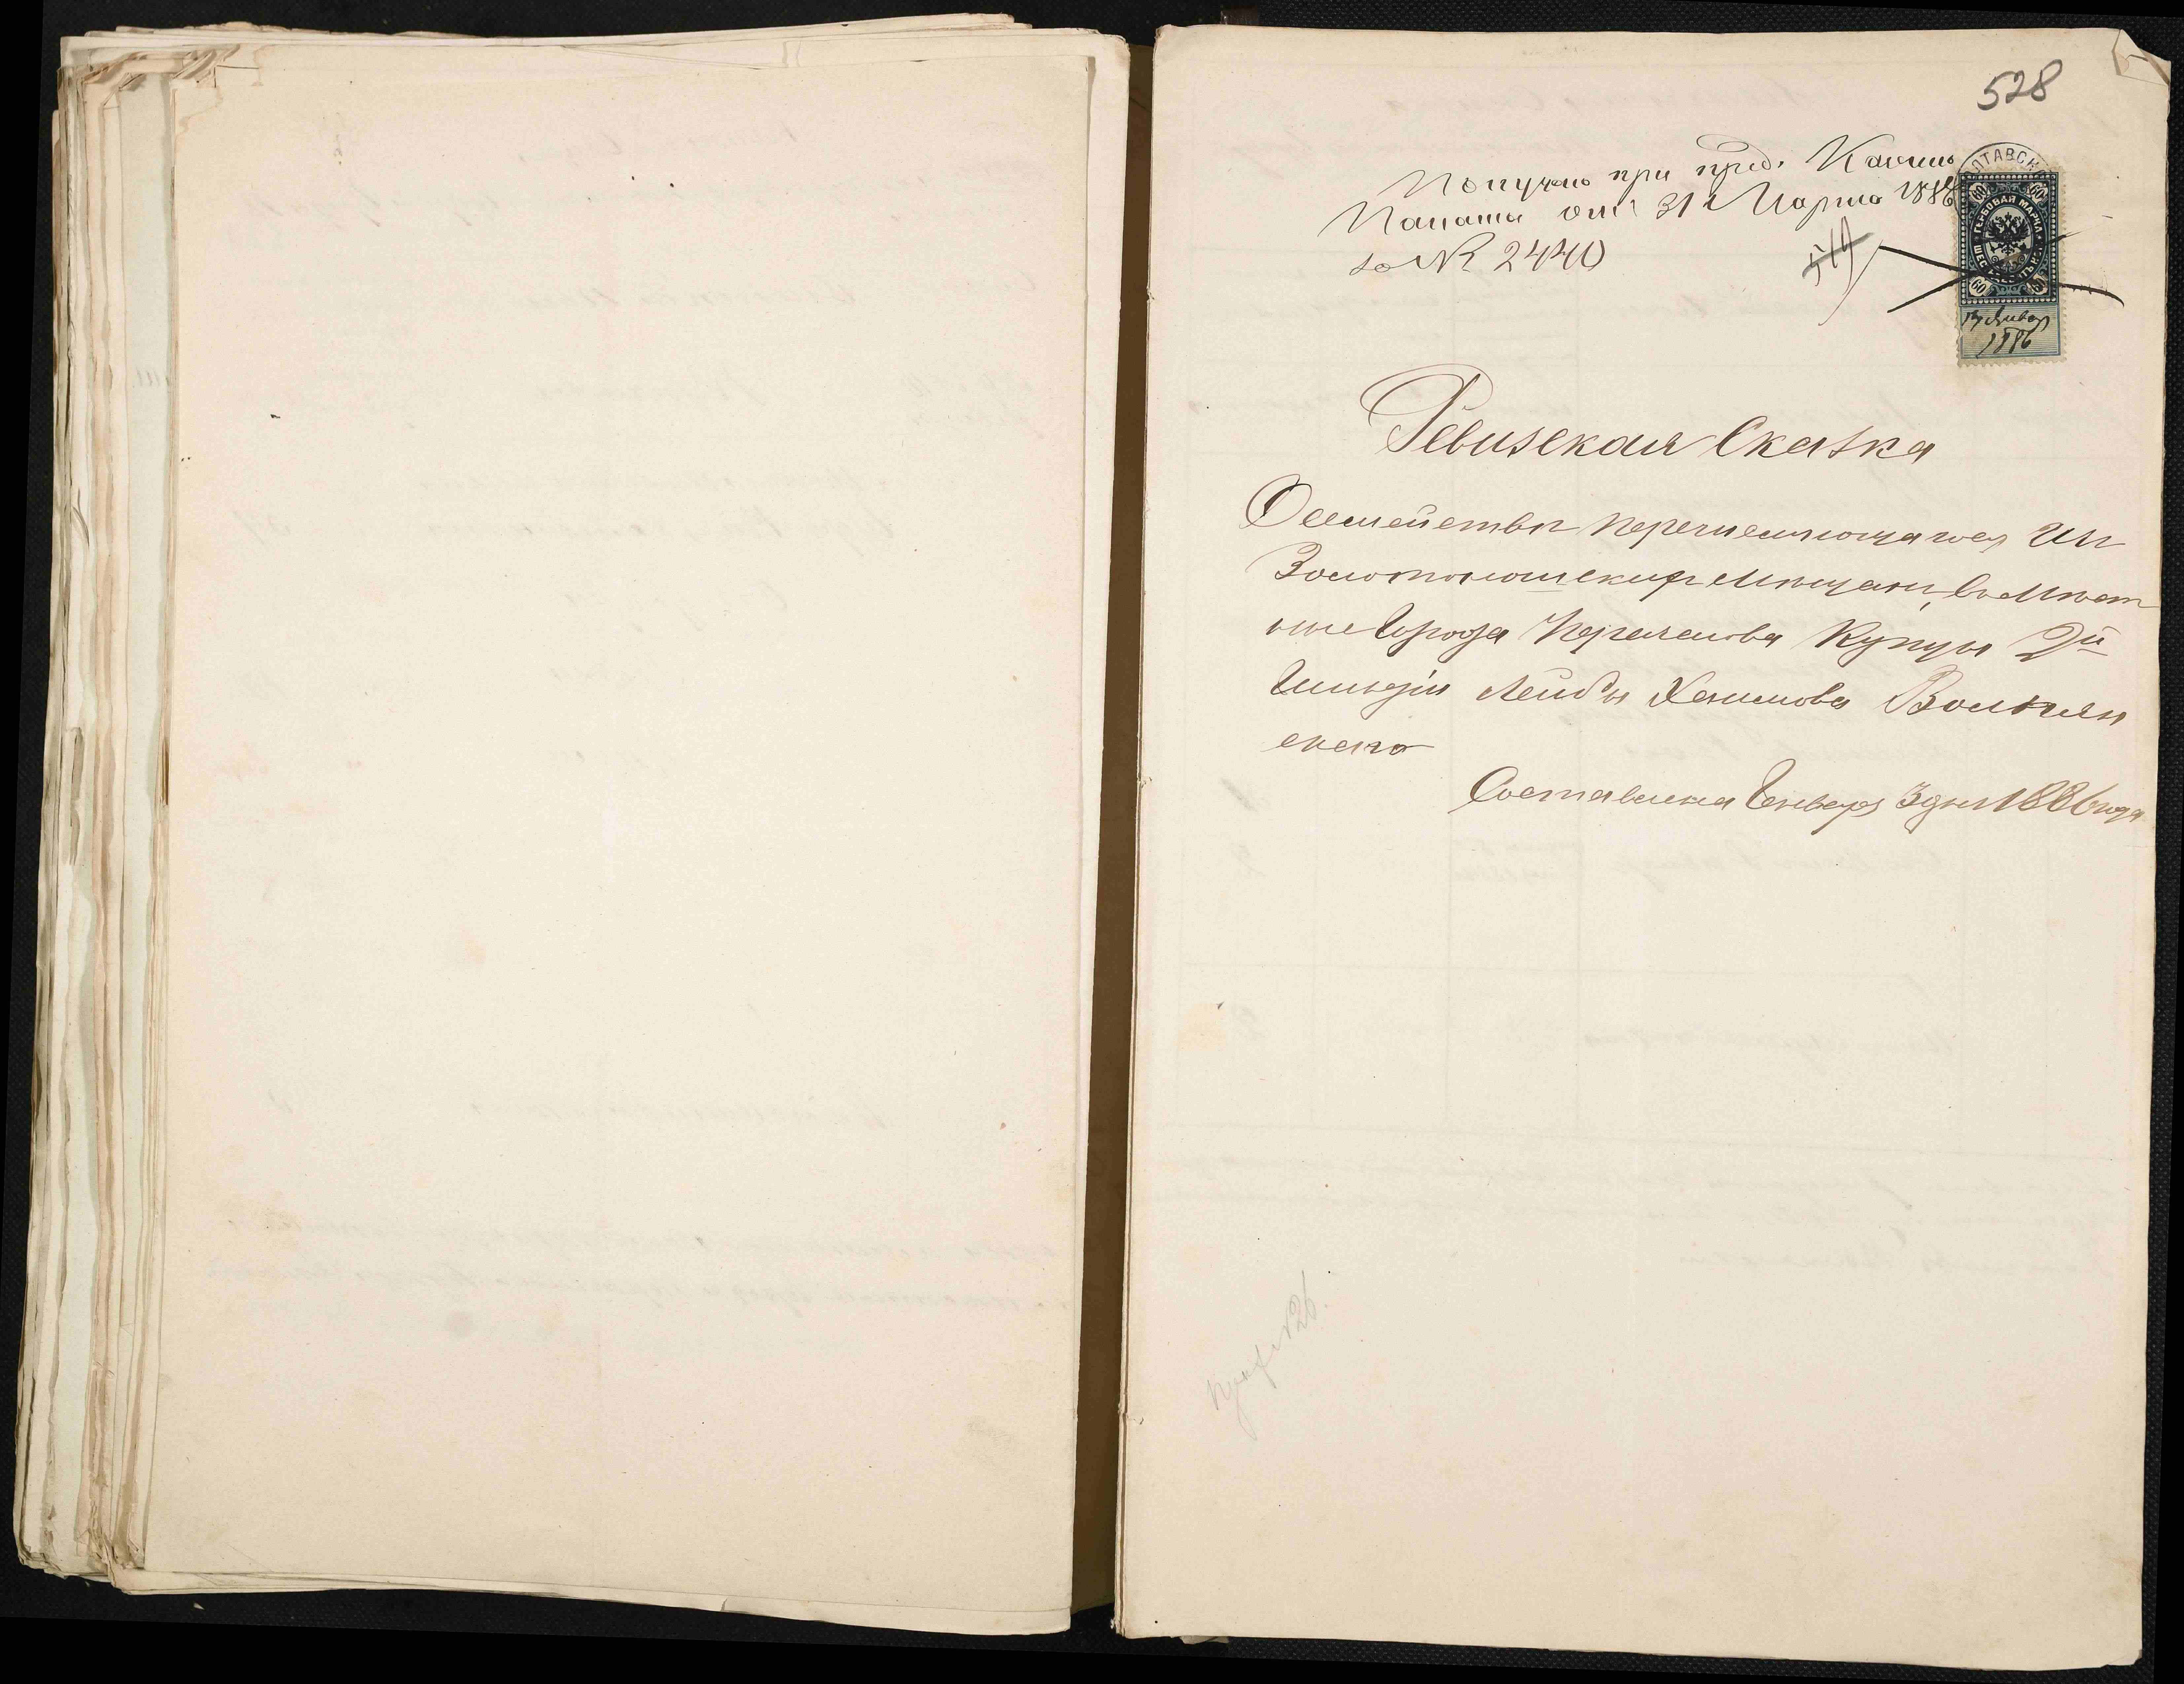 528
Получено при пред. Казен.
Палаты отъ 31 Марта 1886
за № 2440
519
ПОЛТАВСК
60 60
ГЕРБОВАЯ МАРКА
60 60
13 Января
1886
Ревизская Сказка
О семействѣ перечисляющагося изъ
Золотоношскихъ Мѣщанъ, въ Мѣст
ные Города Переяслова Купцы 2й
Гильдіи Лейбы Хаимова Волын
скаго
Составлена Генваря 3 дня 1886 года